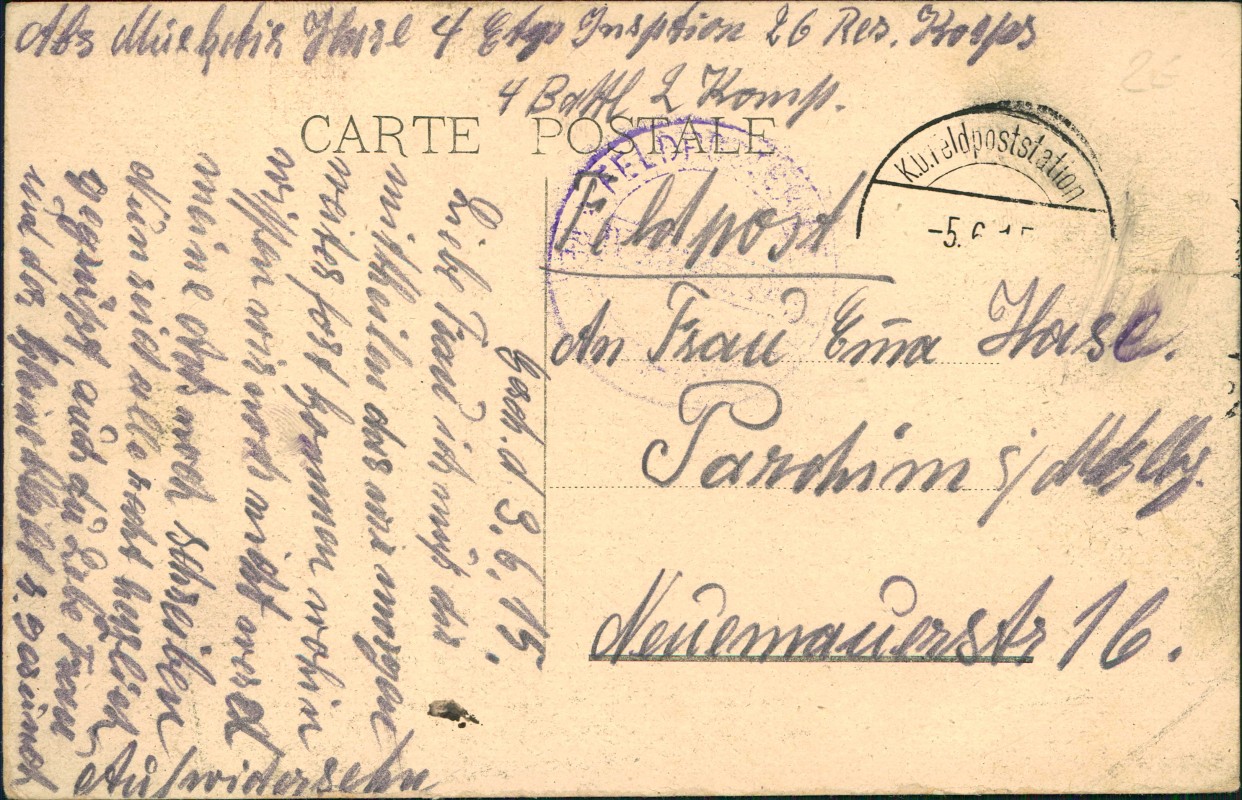 Abs Hase 4 Etap Insption 26 Res. Korps
4 Battl 2 Komp.
CARTE POSTALE
K.D.Feldpoststation
-5. 6. 15
Feldpost
An Frau Ema Hase.
Parchim i/Meklbg.
Neuemauerstr 16.
d. 3. 6. 15.
Liebe Frau ich muß dir
mittheilen das wir morgen
weiter fort kommen wohin
wissen wir noch nicht
meine noch schreiben
nun seid alle recht herzlich
gegrüßt auch du Liebe Frau
und der kleine
Aufwidersehn